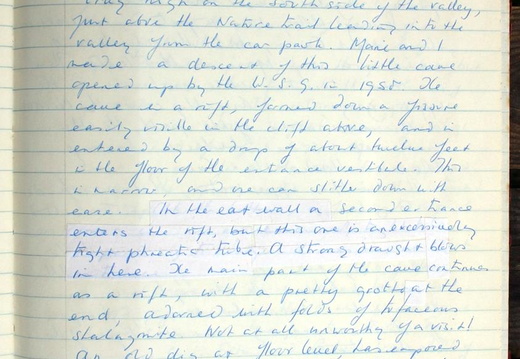 high on the south side of the valley,
just above the Nature trail leading into the
valley from the car park. Marie and I
made a descent of this little cave
opened up by the W.S.G. in 1985. The
cave is a rift, formed down a fissure
easily visible in the cliff above, and is
entered by a drop of about twelve feet
in the floor of the entrance vestibule. This
is narrow, and one can slither down with
ease. In the east wall a second entrance
enters the rift, but this one is an excessively
tight phreatic tube. A strong draught blows
in here. The main part of the cave continues
as a rift, with a pretty grotto at the
end, adorned with folds of tufaceous
stalagmite. Not at all unworthy of a visit!
An old dig at floor level has exposed